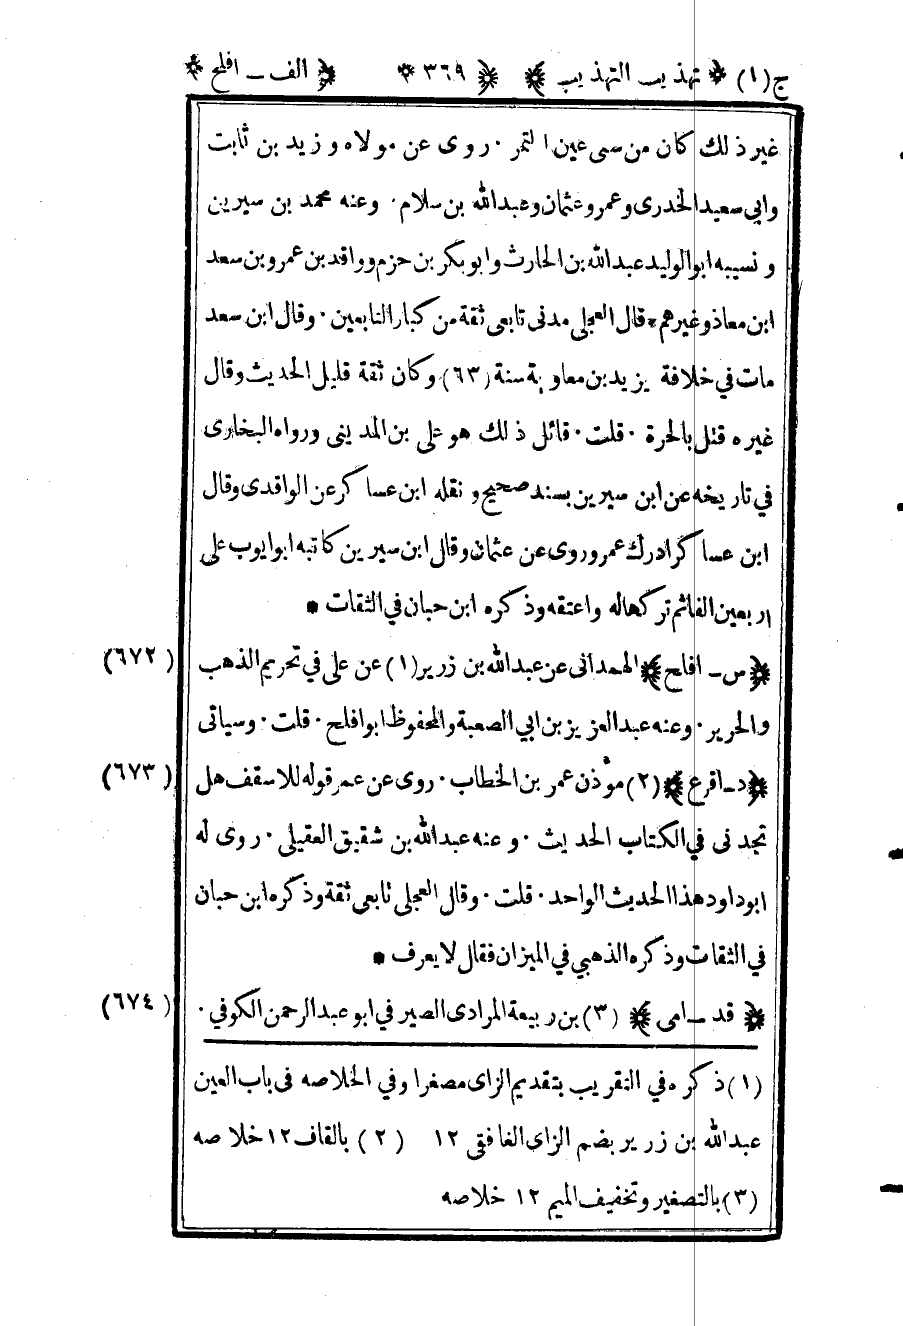 ج (١) ﴿ تهذيب التهذيب ﴾ ﴿ ٣٦٩ ﴾ ﴿ الف ـ افلح ﴾
غير ذلك كان من سبى عين التمر ٠ روى عن مولاه و زيد بن ثابت
وابي سعيد الخدرى وعمر وعثمان وعبدالله بن سلام ٠ وعنه محمد بن سيرين
و نسيبه ابوالوليد عبدالله بن الحارث وابوبكر بن حزم وواقد بن عمرو بن سعد
ابن معاذ وغيرهم * قال العجلى مدنى تابعى ثقة من كبار التابعين ٠ وقال ابن سعد
مات في خلافة يزيد بن معاوية سنة (٦٣) وكان ثقة قليل الحديث وقال
غيره قتل بالحرة ٠ قلت ٠ قائل ذلك هو على بن المدينى ورواه البخارى
في تاريخه عن ابن سيرين بسند صحيح و نقله ابن عساكر عن الواقدى وقال
ابن عساكر ادرك عمر وروى عن عثمان وقال ابن سيرين كاتبه ابوايوب على
اربعين الفا ثم تركها له واعتقه وذكره ابن حبان في الثقات *
(٦٧٢) ﴿ س ـ افلح ﴾ الهمدانى عن عبدالله بن زرير (١) عن على في تحريم الذهب
والحرير ٠ وعنه عبدالعزيز بن ابي الصعبة والمحفوظ ابوافلح ٠ قلت ٠ وسياتى
(٦٧٣) ﴿ د ـ اقرع ﴾ (٢) مؤذن عمر بن الخطاب ٠ روى عن عمر قوله للاسقف هل
تجدنى في الكتاب الحديث ٠ و عنه عبدالله بن شقيق العقيلى ٠ روى له
ابوداود هذا الحديث الواحد ٠ قلت ٠ وقال العجلى تابعى ثقة وذكره ابن حبان
في الثقات وذكره الذهبي في الميزان فقال لا يعرف *
(٦٧٤) ﴿ قد ـ امى ﴾ (٣) بن ربيعة المرادى الصيرفي ابو عبدالرحمن الكوفي ٠
(١) ذكره في التقريب بتقديم الزاى مصغرا وفي الخلاصه فى باب العين
عبدالله بن زرير بضم الزاى الغافقى ١٢ (٢) بالقاف ١٢ خلاصه
(٣) بالتصغير وتخفيف الميم ١٢ خلاصه